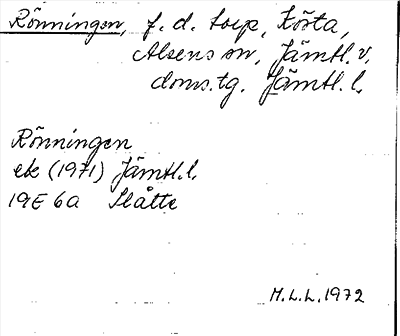 Rönningen, f. d. torp, Kösta,
Alsens sn, Jämtl. v.
doms.tg. Jämtl. l.
Rönningen
ek (1971) Jämtl. l.
19E 6a Slåtte
M.L.L. 1972